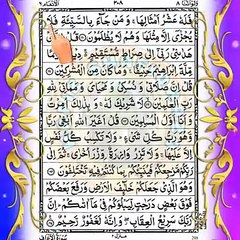 ولواننا ٨ ٢٠٨ الانعام ٦
فَلَهٗ عَشْرُ اَمْثَالِهَا ۚ وَمَنْ جَآءَ بِالسَّيِّئَةِ فَلَا
يُجْزٰۤى اِلَّا مِثْلَهَا وَهُمْ لَا يُظْلَمُوْنَ ۝ قُلْ اِنَّنِيْ
هَدٰىنِيْ رَبِّيْۤ اِلٰى صِرَاطٍ مُّسْتَقِيْمٍ ۚ دِيْنًا قِيَمًا
مِّلَّةَ اِبْرٰهِيْمَ حَنِيْفًا ۚ وَمَا كَانَ مِنَ الْمُشْرِكِيْنَ ۝
قُلْ اِنَّ صَلَاتِيْ وَنُسُكِيْ وَمَحْيَايَ وَمَمَاتِيْ لِلّٰهِ
رَبِّ الْعٰلَمِيْنَ ۝ لَا شَرِيْكَ لَهٗ ۚ وَبِذٰلِكَ اُمِرْتُ
وَاَنَا اَوَّلُ الْمُسْلِمِيْنَ ۝ قُلْ اَغَيْرَ اللّٰهِ اَبْغِيْ رَبًّا
وَّهُوَ رَبُّ كُلِّ شَيْءٍ ؕ وَلَا تَكْسِبُ كُلُّ نَفْسٍ
اِلَّا عَلَيْهَا ۚ وَلَا تَزِرُ وَازِرَةٌ وِّزْرَ اُخْرٰى ۚ ثُمَّ اِلٰى
رَبِّكُمْ مَّرْجِعُكُمْ فَيُنَبِّئُكُمْ بِمَا كُنْتُمْ فِيْهِ تَخْتَلِفُوْنَ ۝
وَهُوَ الَّذِيْ جَعَلَكُمْ خَلٰٓئِفَ الْاَرْضِ وَرَفَعَ بَعْضَكُمْ
فَوْقَ بَعْضٍ دَرَجٰتٍ لِّيَبْلُوَكُمْ فِيْ مَاۤ اٰتٰىكُمْ ؕ اِنَّ
رَبَّكَ سَرِيْعُ الْعِقَابِ ۖ وَاِنَّهٗ لَغَفُوْرٌ رَّحِيْمٌ ۝